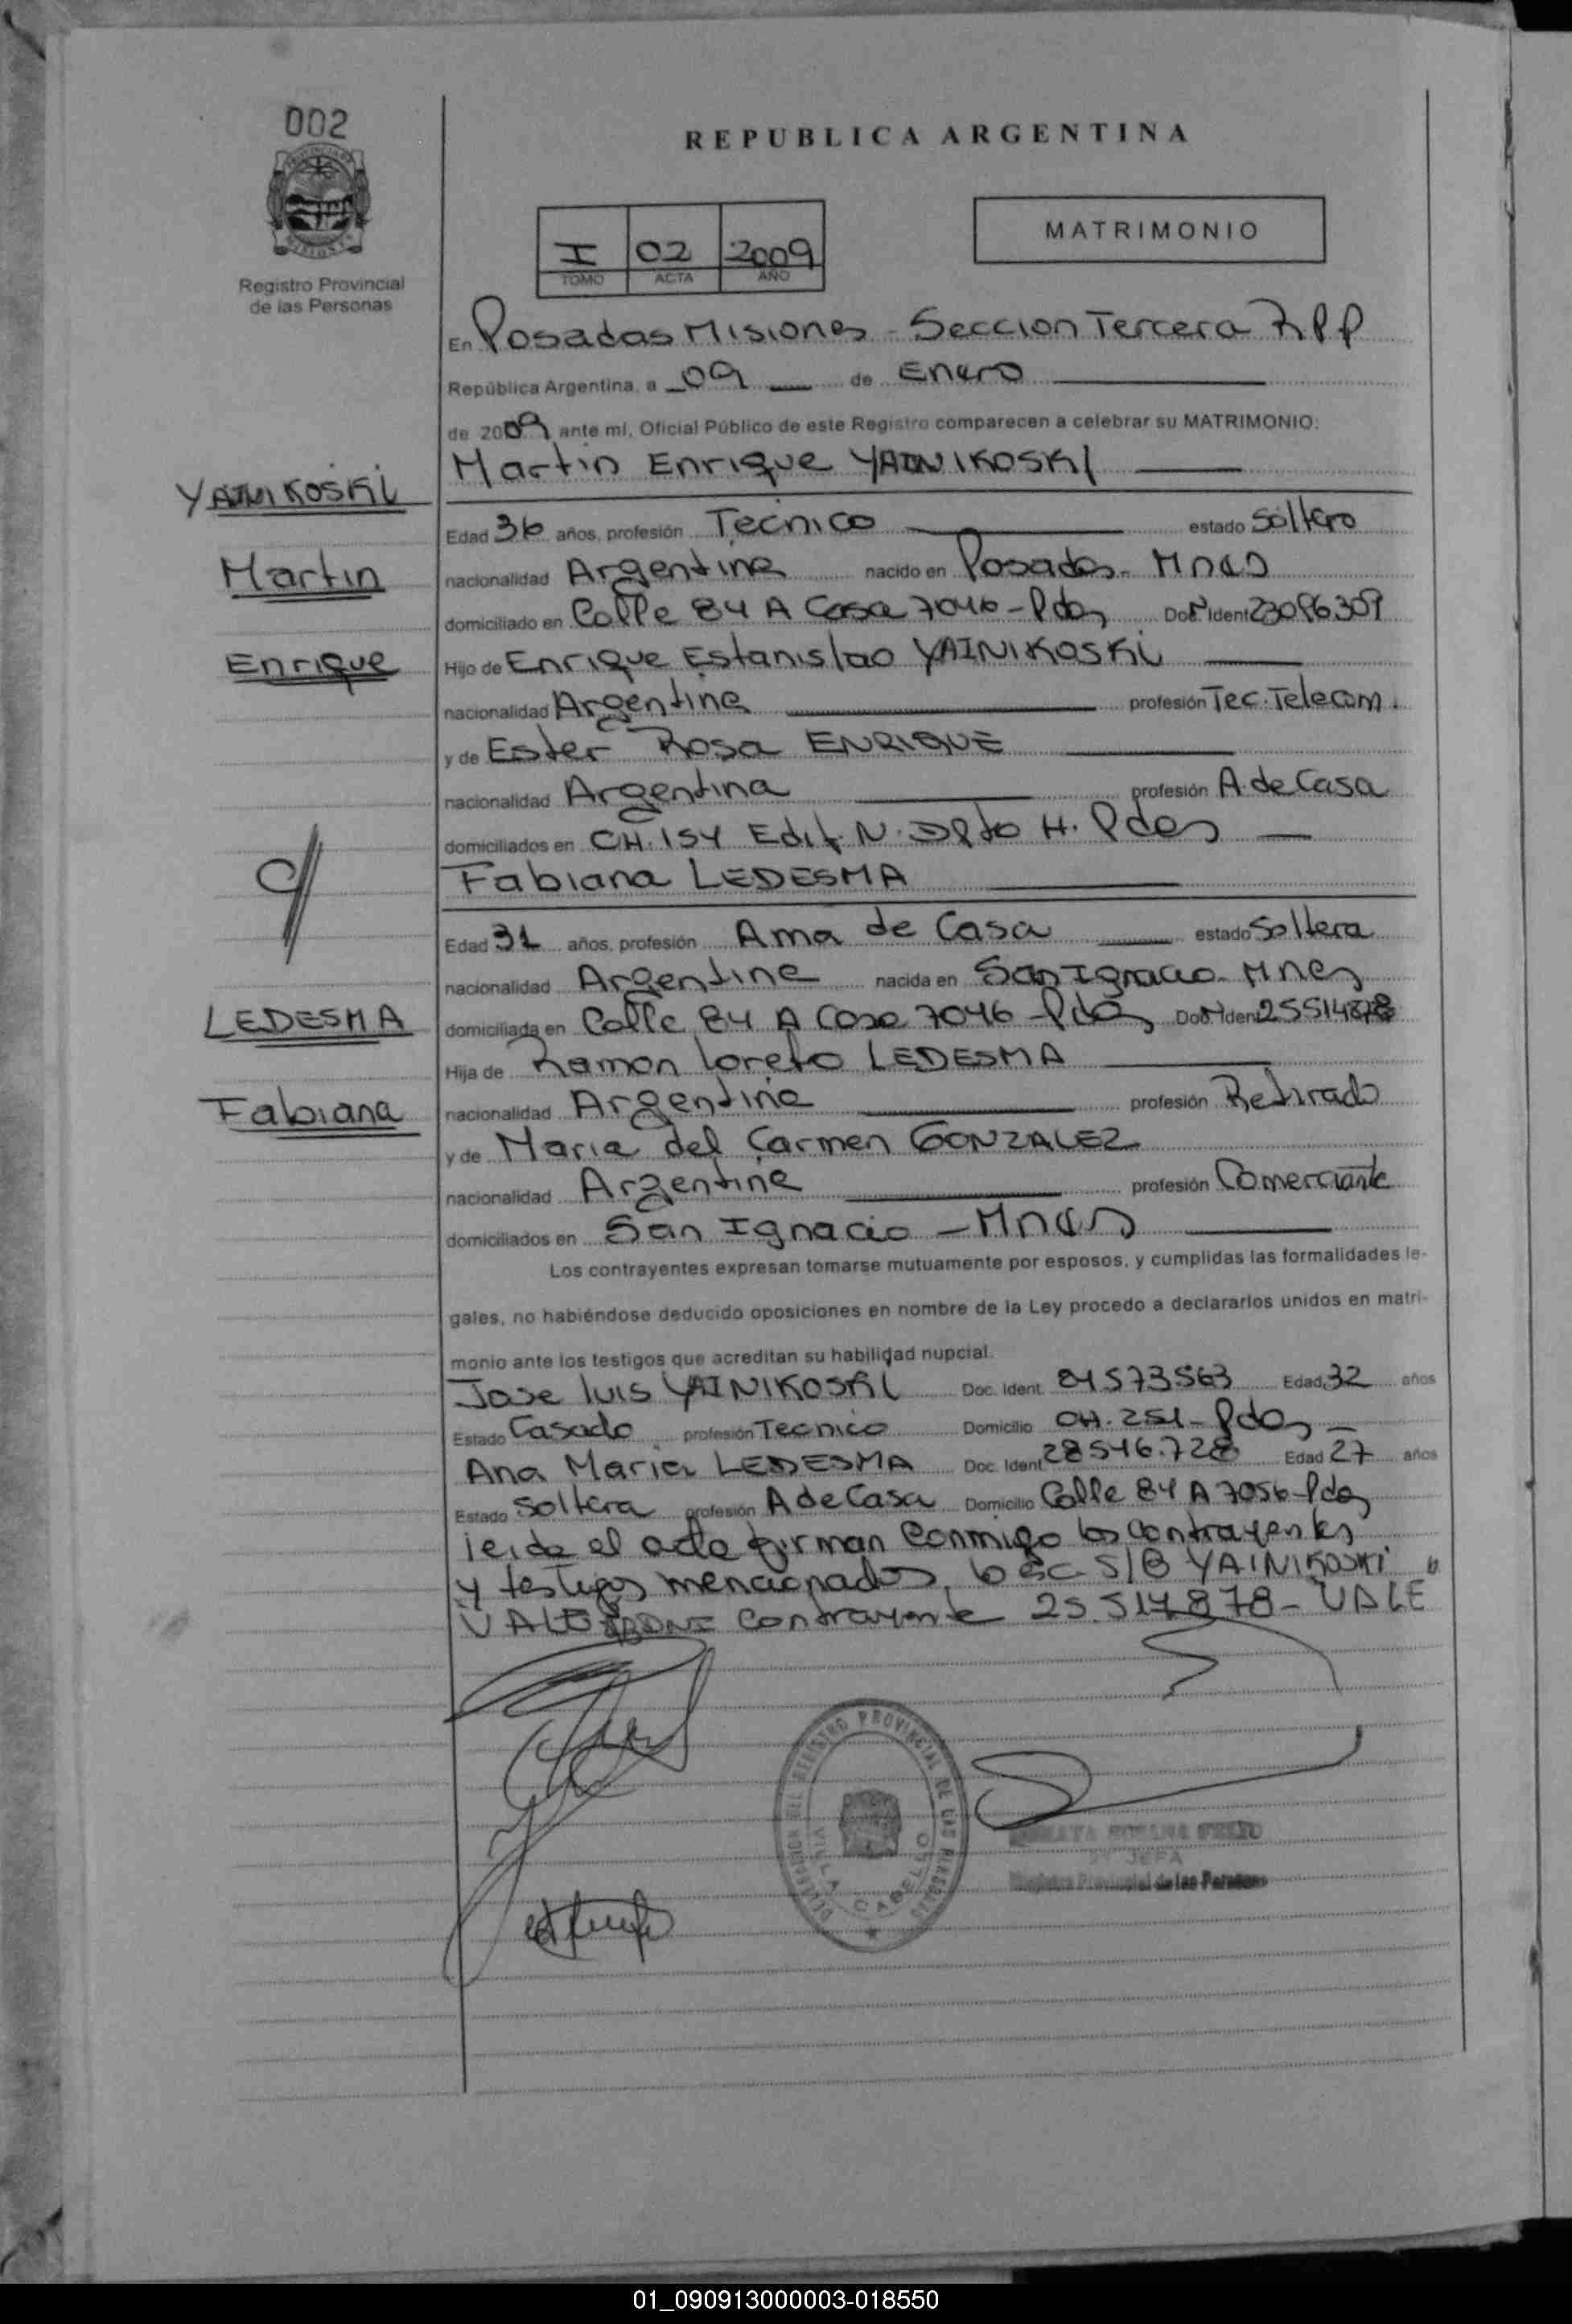 002
REPUBLICA ARGENTINA
I 02 2009
TOMO ACTA AÑO
MATRIMONIO
Registro Provincial
de las Personas
En Posadas Misiones - Seccion Tercera RPP
República Argentina, a 09 de Enero
de 2009 ante mí, Oficial Público de este Registro comparecen a celebrar su MATRIMONIO:
Martin Enrique YAINIKOSKI
YAINIKOSKI
Edad 36 años, profesión Tecnico estado Soltero
Martin
nacionalidad Argentina nacido en Posadas - Mnes
domiciliado en Calle 84 A Casa 7046 - Pdas Doc. Ident 23096309
Enrique
Hijo de Enrique Estanislao YAINIKOSKI
nacionalidad Argentina profesión Tec. Telecom.
y de Ester Rosa ENRIQUE
nacionalidad Argentina profesión A. de Casa
domiciliados en CH. 154 Edif. N. Dpto H. Pdas
Fabiana LEDESMA
Edad 31 años, profesión Ama de Casa estado Soltera
nacionalidad Argentina nacida en San Ignacio - Mnes
LEDESMA
domiciliada en Calle 84 A Casa 7046 - Pdas Ident 25514878
Hija de Ramon Loreto LEDESMA
Fabiana
nacionalidad Argentina profesión Retirado
y de Maria del Carmen GONZALEZ
nacionalidad Argentina profesión Comerciante
domiciliados en San Ignacio - Mnes
Los contrayentes expresan tomarse mutuamente por esposos, y cumplidas las formalidades le-
gales, no habiéndose deducido oposiciones en nombre de la Ley procedo a declararlos unidos en matri-
monio ante los testigos que acreditan su habilidad nupcial.
Jose Luis YAINIKOSKI Doc. Ident. 24573563 Edad 32 años
Estado Casado profesión Tecnico Domicilio CH. 251 - Pdas
Ana Maria LEDESMA Doc. Ident. 28546.728 Edad 27 años
Estado Soltera profesión A de Casa Domicilio Calle 84 A 7056 - Pdas
leida el acta firman conmigo los contrayentes
y testigos mencionados, lo esc. S/B YAINIKOSKI "
VALE DNI contrayente 25.514.878 - VALE
DELEGACION DEL REGISTRO PROVINCIAL DE LAS PERSONAS
VILLA CABELLO
JEFA
Registro Provincial de las Personas
01_090913000003-018550